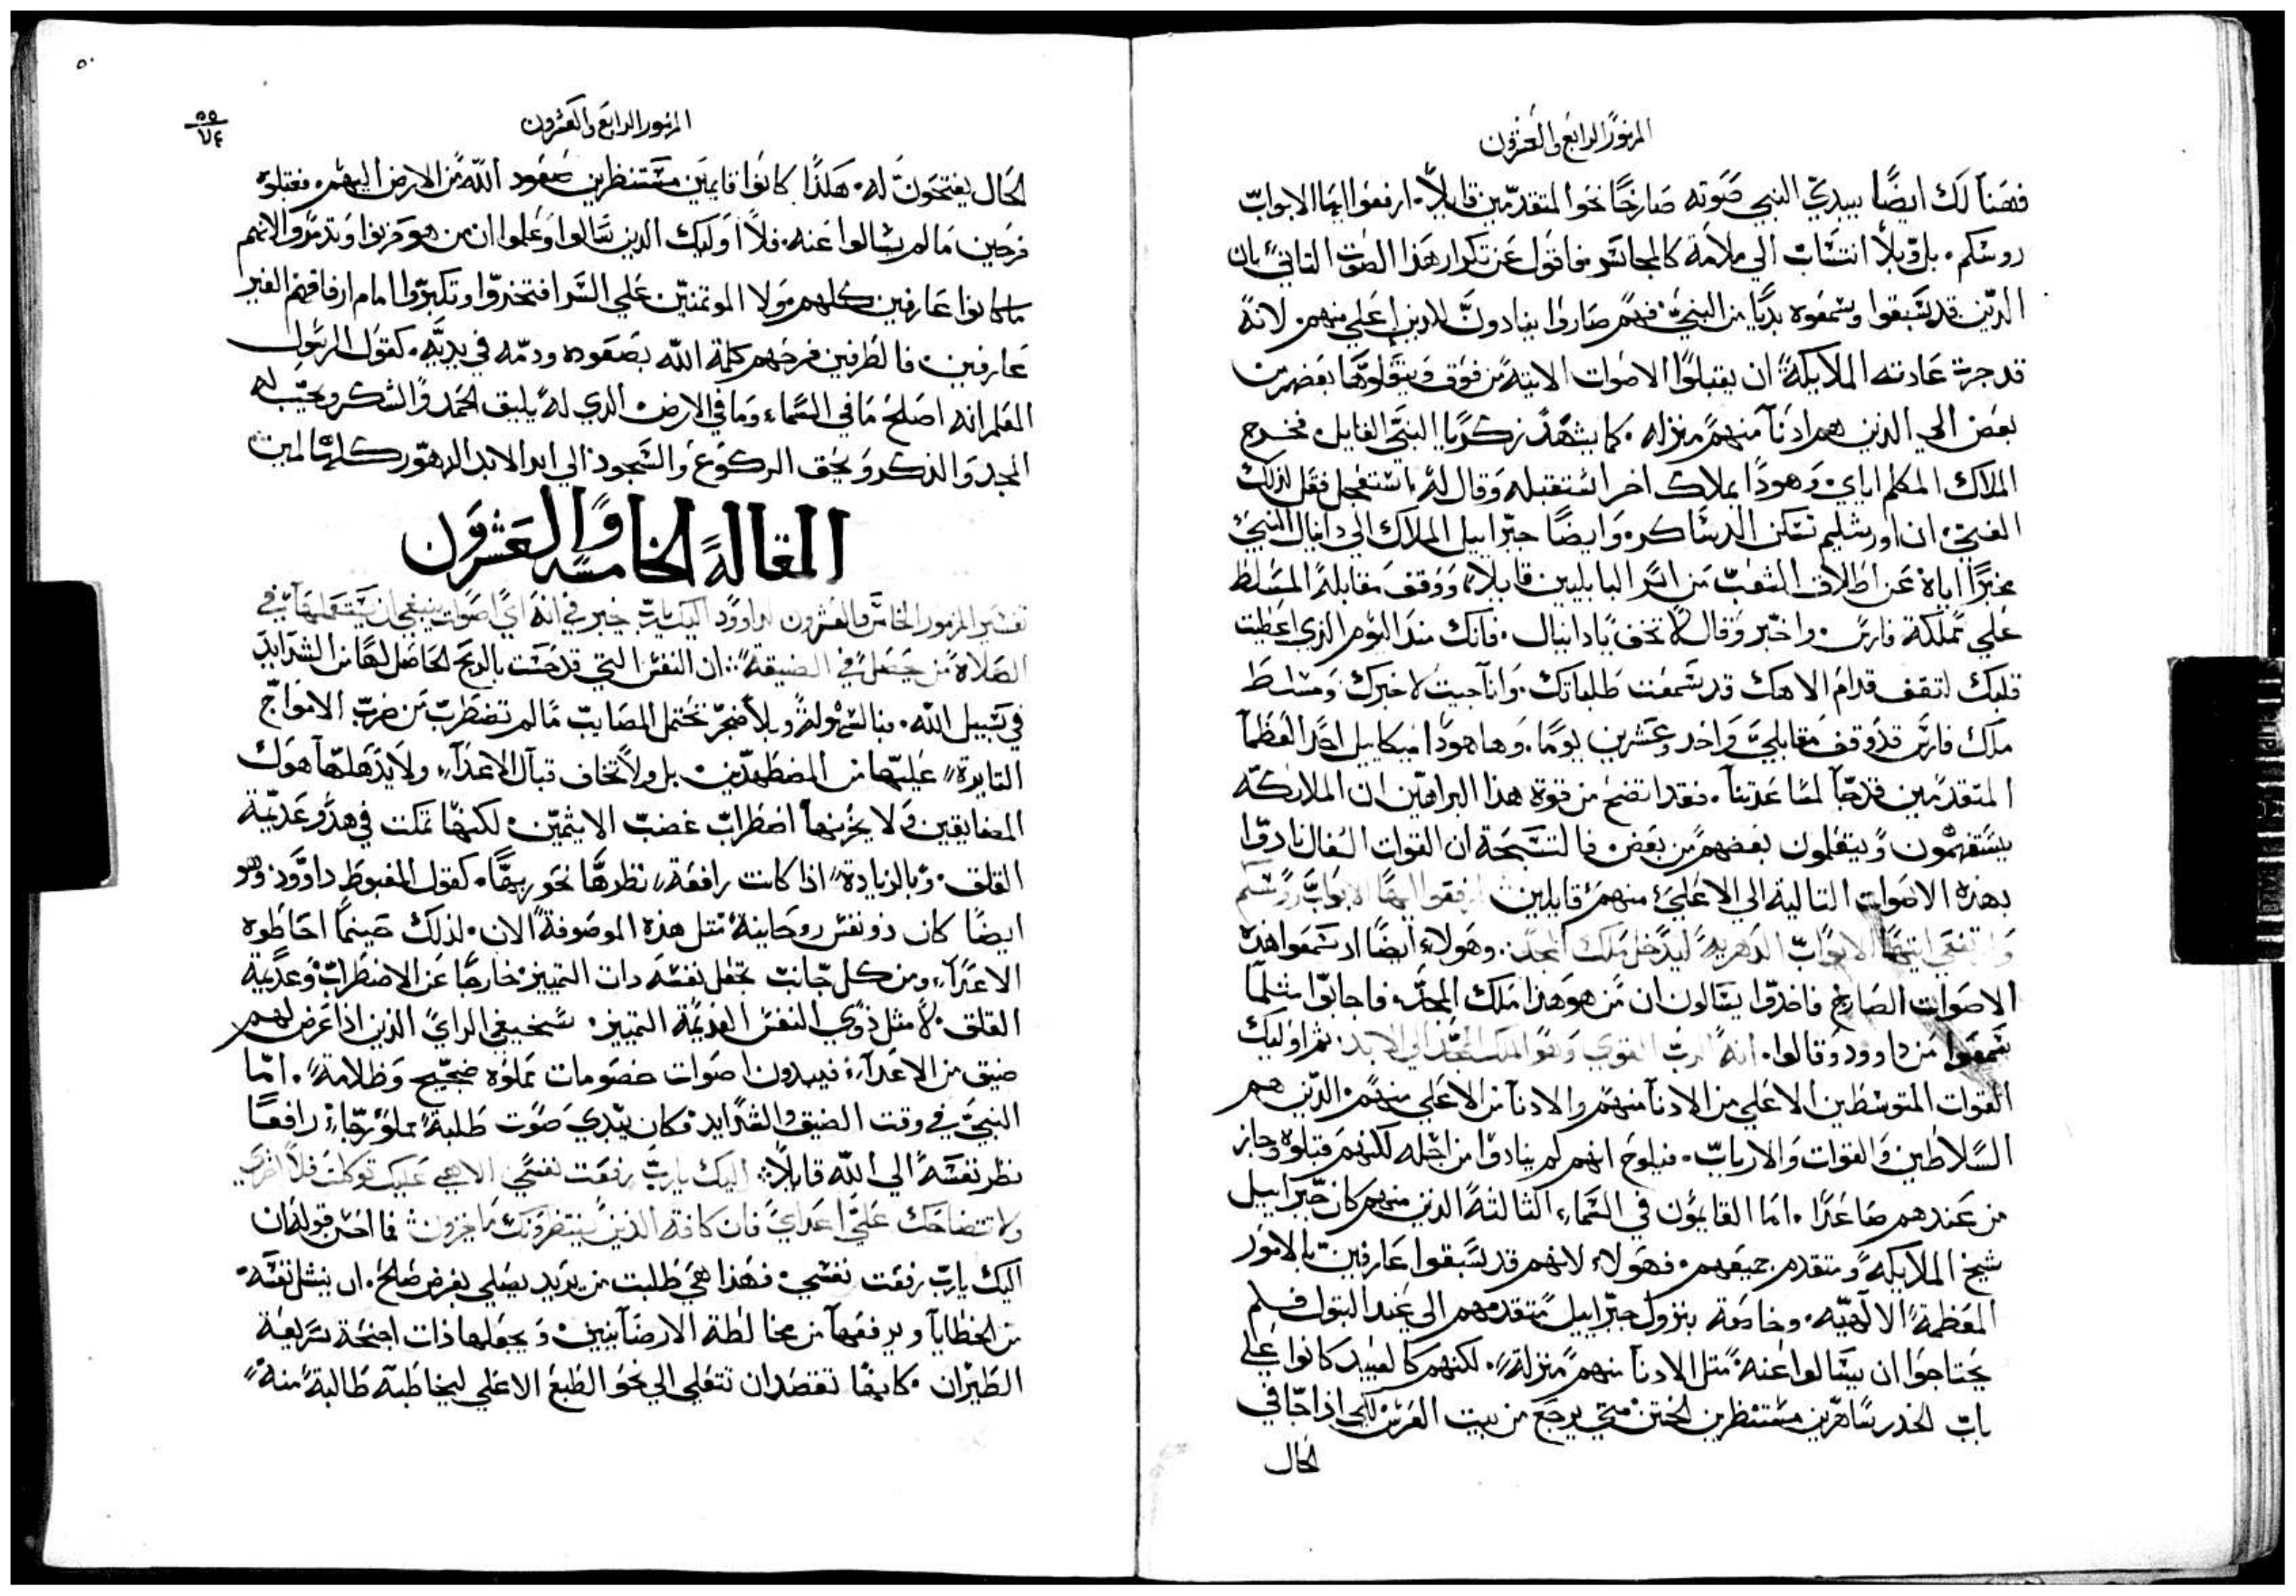 المزمور الرابع والعشرون
فهنا لك ايضًا يبدي النبي صوته صارخًا نحو المتقدمين قايلاً. ارفعوا ايها الابواب
روسكم. بل وبلا انتساب الي ملامة كالمجانس فاقول عن تكرار هذا الصوت الثاني بان
الذين قد سبقوا وسمعوه بديًا من النبي فهم صاروا ينادون للذين اعلي منهم. لانه
قد جرت عادته الملايكة ان يقبلوا الاصوات الاتية من فوق ويتقلوها بعضهم من
بعض الي الذين هم ادنا منهم منزله. كما يشهد زكريا النبي القايل. فخرج
الملاك المكلم اياي وهوذا بملاك اخر استقبله وقال له استعجل فقل لذلك
الفتي ان اورشليم تسكن الدساكر. وايضًا جبراييل الملاك الي دانيال النبي
مخبرًا اياه عن اطلاق الشعب من اسر البابليين قايلا. ووقف مقابله المسلط
علي مملكة فارس. واخبر وقال لا تخف يا دانيال. فانك منذ اليوم الذي اعطيت
قلبك لتقف قدام الاهك قد سمعت طلباتك. وانا جيت لاخبرك ومسلط
ملك فارس قد وقف مقابلي واحد وعشرين يومًا. وها هوذا ميكاييل احد العظما
المتقدمين قد جا لمساعدتنا. فقد اتضح من قوة هذا البراهين ان الملايكه
يستفهمون ويتعلمون بعضهم من بعض. فالنتيجة ان القوات السفال نادوا
بهذه الاصوات التالية الي الاعلي منهم قايلين ارفعوا ايها الابواب روسكم
وارتفعي ايتها الابواب الدهرية ليدخل ملك المجد. وهولاء ايضًا اذ سمعوا هذه
الاصوات الصارخ فاخذوا يسالون ان من هو هذا ملك المجد. فاجابوا مثلما
سمعوا من داوود وقالوا. انه الرب القوي وهو الملك المجد الي الابد. ثم اوليك
القوات المتوسطين الاعلي من الادنا منهم والادنا من الاعلي منهم. الذين هم
السلاطين والقوات والارباب. فيلوح انهم لم ينادوا من اجله لكنهم قبلوه وجاز
من عندهم صاعدًا. اما القايمون في السماء الثالثة الذين منهم كان جبراييل
شيخ الملايكه ومتقدم جميعهم. فهولاء لانهم قد سبقوا عارفين بالامور
المعظمة الالهيه. وخاصة بنزول جبراييل متقدمهم الي عند البتول فلم
يحتاجوا ان يسالوا عنه مثل الادنا منهم منزلة. لكنهم كالعبيد كانوا علي
باب الخدر ساهرين مستنظرين الختن متي يرجع من بيت العرس لكي اذا جا في
الحال
المزمور الرابع والعشرون
الحال يفتحون له. هكذا كانوا قايمين مستنظرين صعود الله من الارض اليهم. فقبلوه
فرحين ما لم يسالوا عنه. فلا اوليك الذين سالوا وعلموا ان من هو حزنوا وتذمروا لانهم
ما كانوا عارفين كلهم ولا الموتمنين علي السر افتخروا وتكبروا امام ارفاقهم الغير
عارفين. فالطرفين فرحهم كلمة الله بصعوده ودمه في يديه. كقول الرسول
العلم انه اصلح ما في السماء وما في الارض الذي له يليق الحمد والشكر ويجب له
المجد والذكر ويحق الركوع والسجود الي ابد الابد الدهور كلها امين
المقالة الخامسه والعشرون
تفسير المزمور الخامس والعشرون لداوود اليك يارب خبر في انه اي اصوات ينبغي ان يستعملها في
الصلاة من يحصل في الضيقة. ان النفس التي قد حست بالربح الحاصل لها من الشدايد
في سبيل الله. فبالسهولة وبلا ضجر تحتمل المصايب ما لم تضطرب من ضرب الامواج
الثايرة عليها من المضطهدين. بل ولا تخاف قبال الاعداء ولا يذهلها هول
المضايقين ولا يحزنها اضطراب غضب الاثيمين. لكنها تمكث في هدو عديمة
القلق. وبالزيادة اذا كانت رافعة نظرها نحو ربها. كقول المغبوط داوود. وهو
ايضًا كان ذو نفس روحانية مثل هذه الموصوفة الان. لذلك حينما احاطوه
الاعداء ومن كل جانب تجعل نفسه ذات التمييز خارجًا عن الاضطراب وعديمة
القلق. لا مثل ذوي النفس العديمة التمييز. سخيفي الراي الذين اذا عرض لهم
ضيق من الاعداء فيبدون اصوات خصومات مملوه ضجيج وظلامة. اما
النبي في وقت الضيق والشدايد فكان يبدي صوت طلبة مملو رجاء رافعًا
نظر نفسه الي الله قايلا. اليك يارب رفعت نفسي الاهي عليك توكلت فلا اخزي
ولا تتضاحك علي اعداي فان كافة الذين ينتظرونك ما يخزون. فما احسن قوله ان
اليك يارب رفعت نفسي. فهذا هي طلبت من يريد يصلي بغرض صالح. ان ينشل نفسه
من الخطايا ويرفعها من مخالطة الارضانيين ويجعلها ذات اجنحة سريعة
الطيران. كانها تقصد ان تتعلي الي نحو الطبع الاعلي ليخاطبه طالبة منه